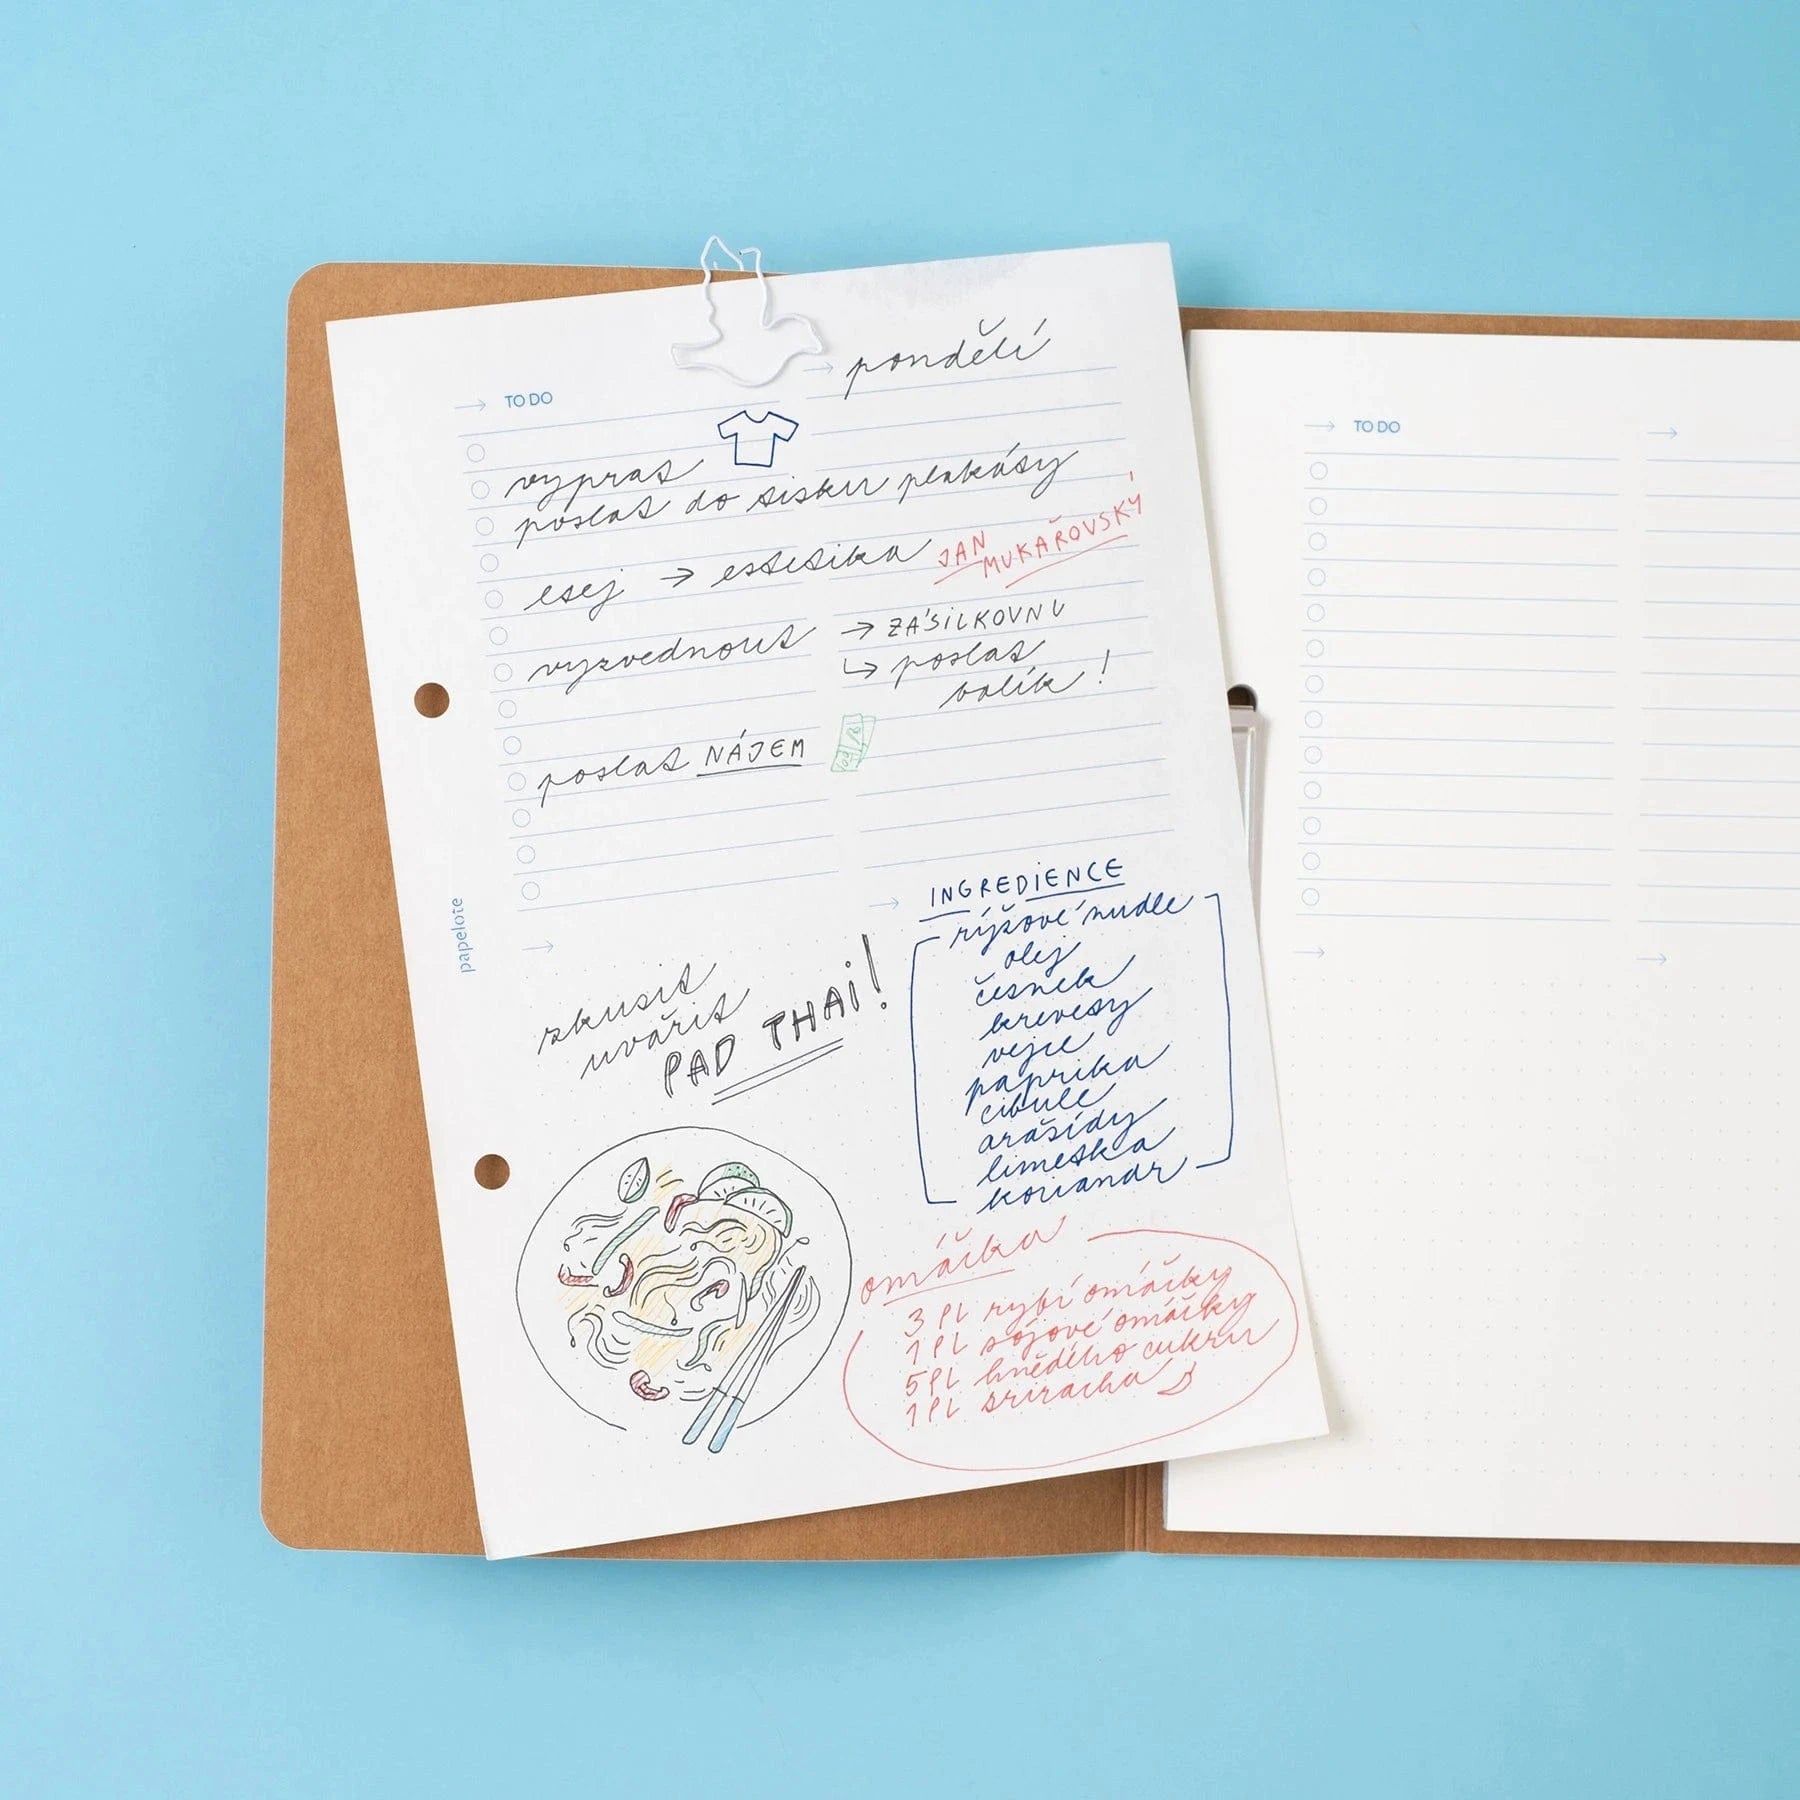 → TO DO
→ pondělí
vyprat
poslat do tisku plakáty
esej → estetika JAN
MUKAŘOVSKÝ
vyzvednout → ZÁSILKOVNU
↳ poslat
balík!
poslat NÁJEM
papelote
zkusit
uvařit
PAD THAI!
→ INGREDIENCE
rýžové nudle
olej
česnek
krevety
vejce
paprika
cibule
arašídy
limetka
koriandr
omáčka
3 PL rybí omáčky
1 PL sójové omáčky
5 PL hnědého cukru
1 PL sriracha
→ TO DO